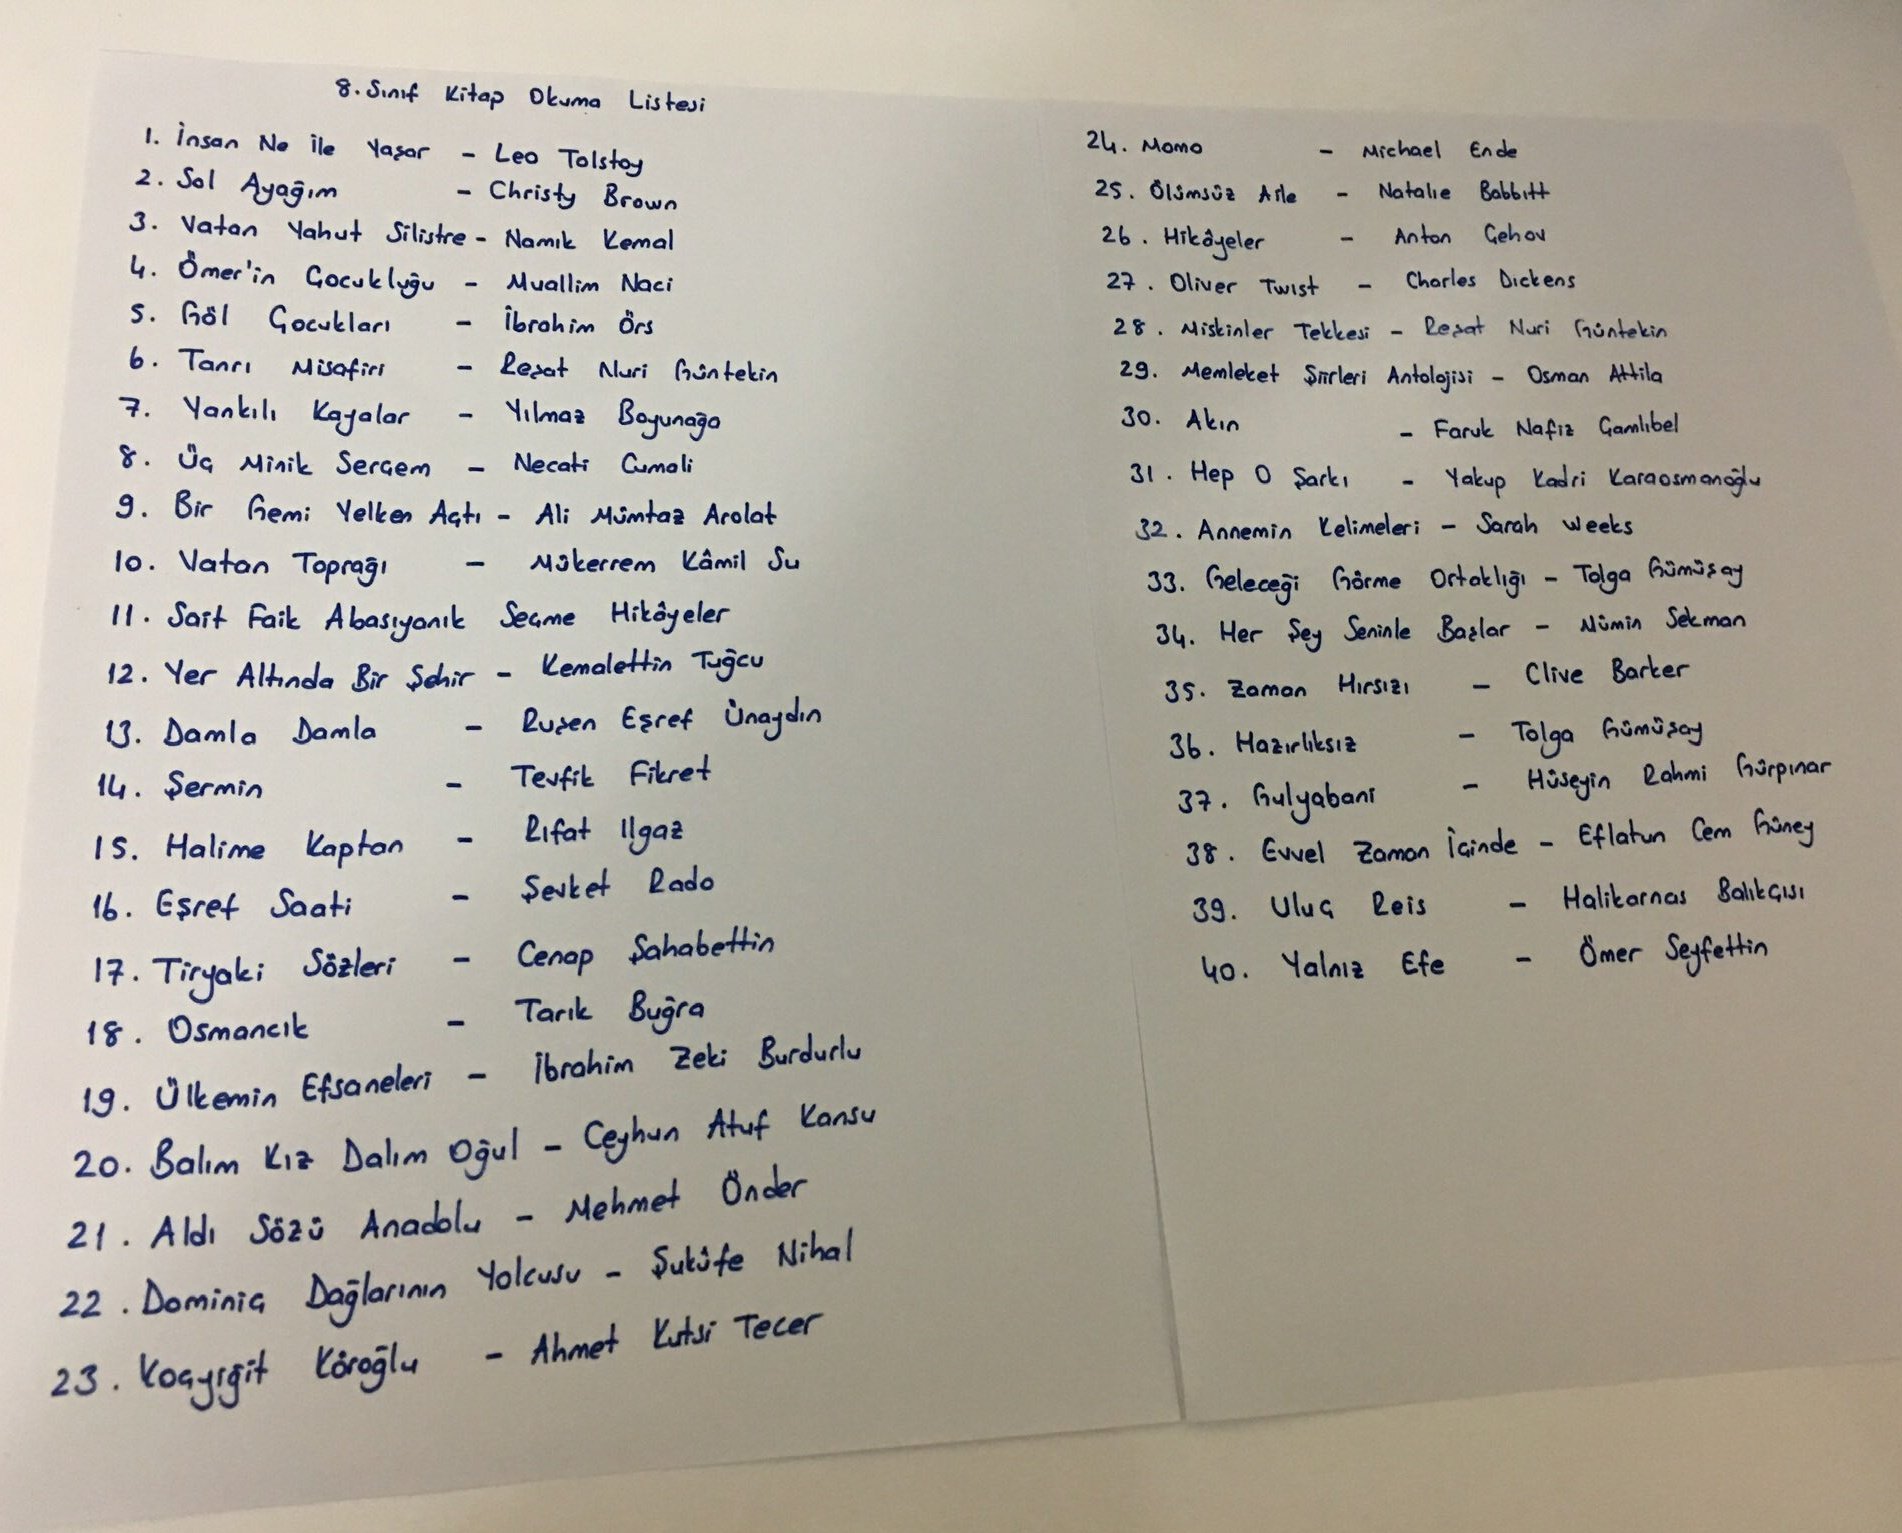 8. Sınıf Kitap Okuma Listesi
1. İnsan Ne İle Yaşar - Leo Tolstoy
2. Sol Ayağım - Christy Brown
3. Vatan Yahut Silistre - Namık Kemal
4. Ömer'in Çocukluğu - Muallim Naci
5. Göl Çocukları - İbrahim Örs
6. Tanrı Misafiri - Reşat Nuri Güntekin
7. Yankılı Kayalar - Yılmaz Boyunağa
8. Üç Minik Serçem - Necati Cumali
9. Bir Gemi Yelken Açtı - Ali Mümtaz Arolat
10. Vatan Toprağı - Mükerrem Kâmil Su
11. Sait Faik Abasıyanık Seçme Hikâyeler
12. Yer Altında Bir Şehir - Kemalettin Tuğcu
13. Damla Damla - Ruşen Eşref Ünaydın
14. Şermin - Tevfik Fikret
15. Halime Kaptan - Rıfat Ilgaz
16. Eşref Saati - Şevket Rado
17. Tiryaki Sözleri - Cenap Şahabettin
18. Osmancık - Tarık Buğra
19. Ülkemin Efsaneleri - İbrahim Zeki Burdurlu
20. Balım Kız Dalım Oğul - Ceyhun Atuf Kansu
21. Aldı Sözü Anadolu - Mehmet Önder
22. Dominiç Dağlarının Yolcusu - Şukûfe Nihal
23. Koçyiğit Köroğlu - Ahmet Kutsi Tecer
24. Momo - Michael Ende
25. Ölümsüz Aile - Natalie Babbitt
26. Hikâyeler - Anton Çehov
27. Oliver Twist - Charles Dickens
28. Miskinler Tekkesi - Reşat Nuri Güntekin
29. Memleket Şiirleri Antolojisi - Osman Attila
30. Akın - Faruk Nafiz Çamlıbel
31. Hep O Şarkı - Yakup Kadri Karaosmanoğlu
32. Annemin Kelimeleri - Sarah Weeks
33. Geleceği Görme Ortaklığı - Tolga Gümüşay
34. Her Şey Seninle Başlar - Mümin Sekman
35. Zaman Hırsızı - Clive Barker
36. Hazırlıksız - Tolga Gümüşay
37. Gulyabani - Hüseyin Rahmi Gürpınar
38. Evvel Zaman İçinde - Eflatun Cem Güney
39. Uluç Reis - Halikarnas Balıkçısı
40. Yalnız Efe - Ömer Seyfettin